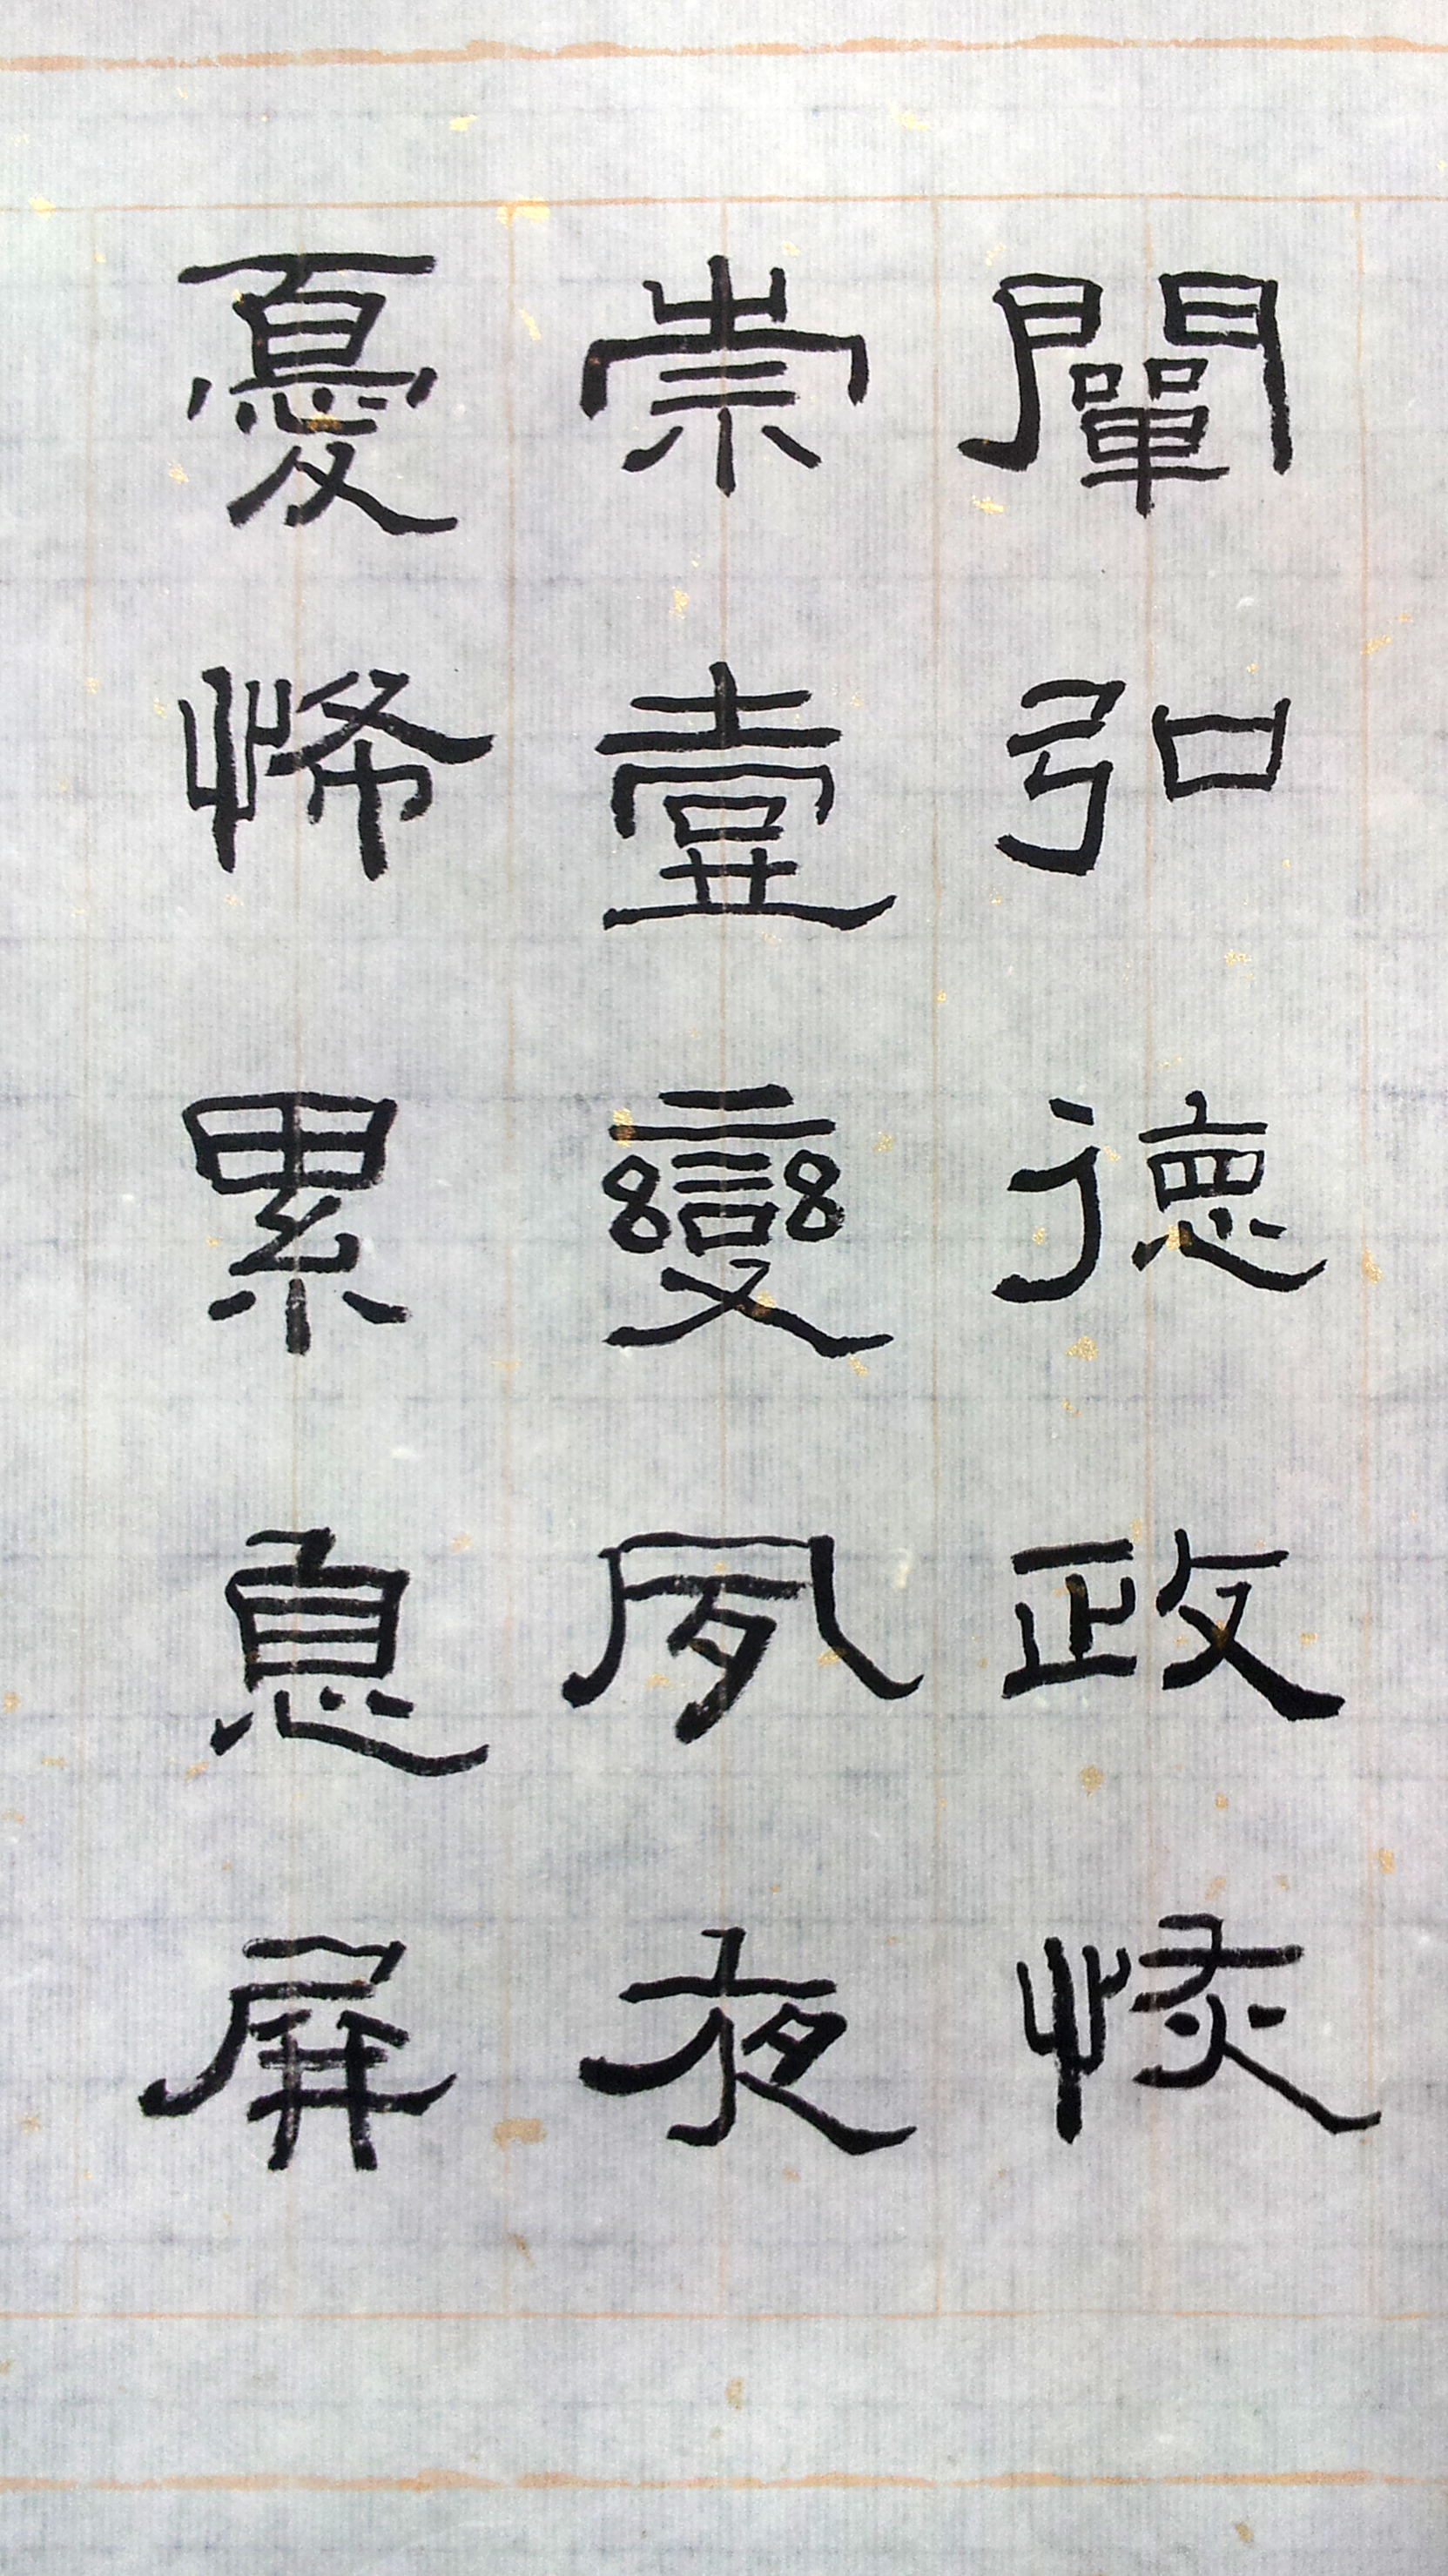 闡弘德政恢
崇壹變夙夜
憂怖累息屏